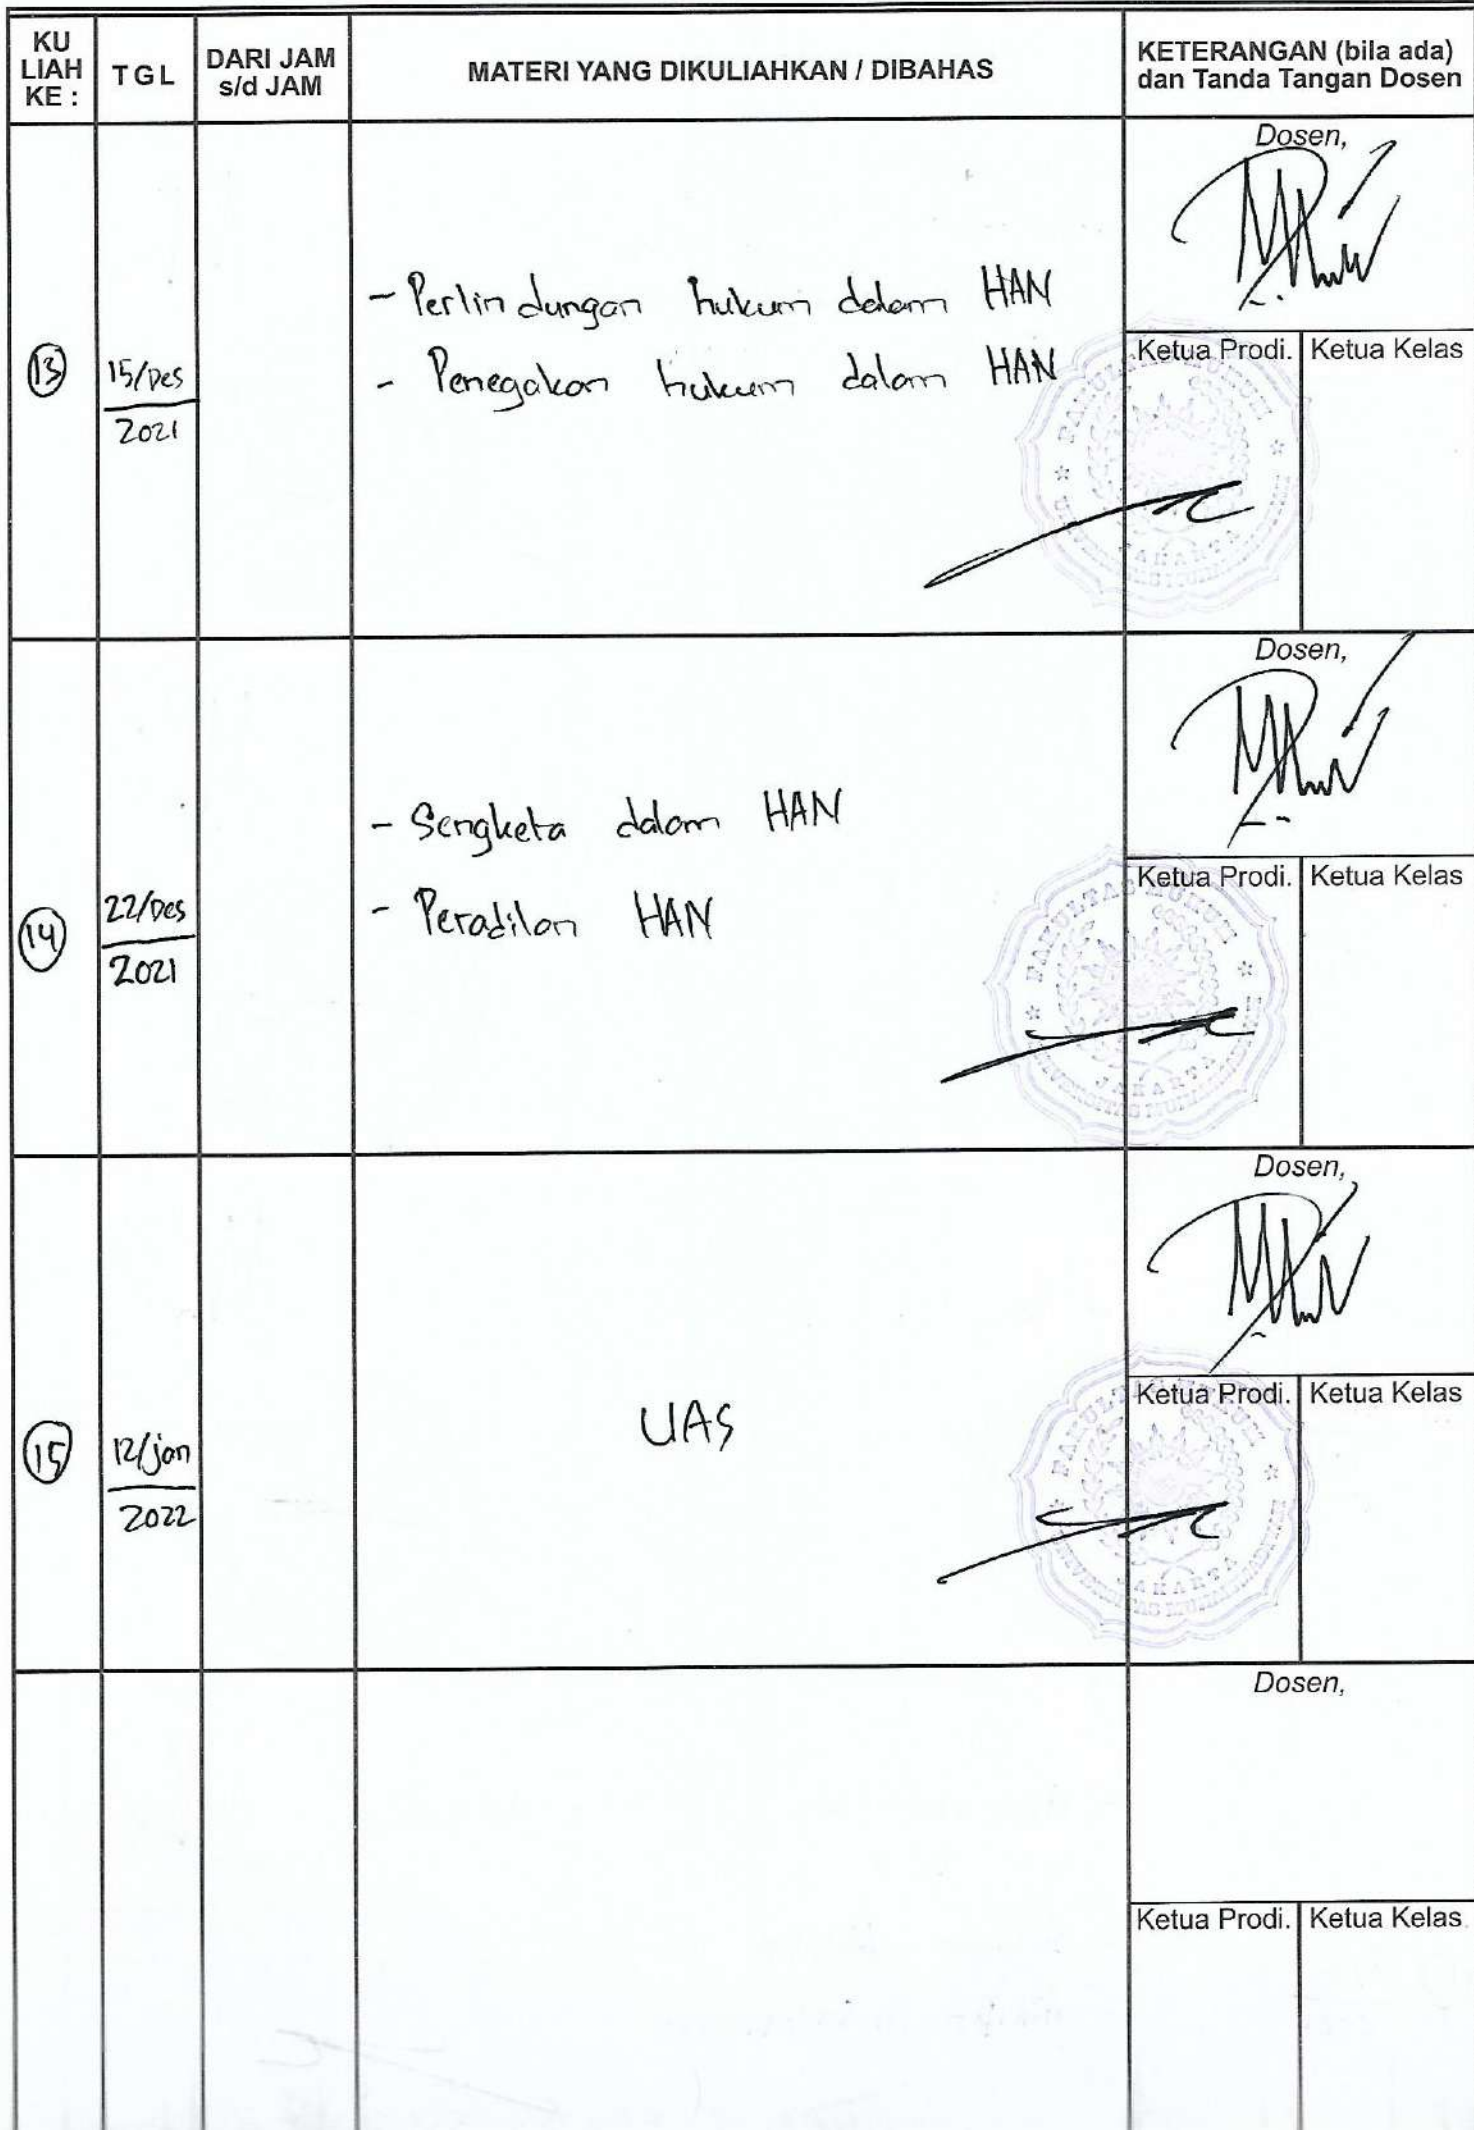 KU LIAH KE :
TGL
DARI JAM s/d JAM
MATERI YANG DIKULIAHKAN / DIBAHAS
KETERANGAN (bila ada) dan Tanda Tangan Dosen
13
15/Des
2021
- Perlindungan hukum dalam HAN
- Penegakan hukum dalam HAN
Dosen,
Ketua Prodi.
Ketua Kelas
FAKULTAS HUKUM
JAKARTA
14
22/Des
2021
- Sengketa dalam HAN
- Peradilan HAN
Dosen,
Ketua Prodi.
Ketua Kelas
FAKULTAS HUKUM
JAKARTA
15
12/jan
2022
UAS
Dosen,
Ketua Prodi.
Ketua Kelas
FAKULTAS HUKUM
JAKARTA
Dosen,
Ketua Prodi.
Ketua Kelas